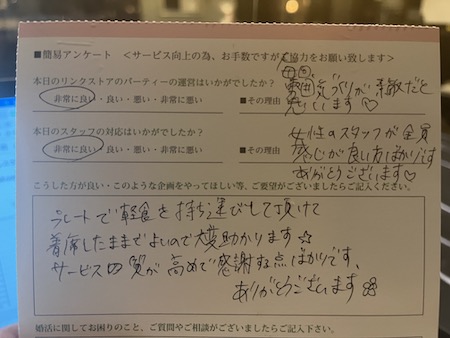 ■簡易アンケート <サービス向上の為、お手数ですがご協力をお願い致します>
本日のリンクストアのパーティーの運営はいかがでしたか?
非常に良い・良い・悪い・非常に悪い
■その理由
気づくりが素敵だと
思います♡
本日のスタッフの対応はいかがでしたか?
非常に良い・良い・悪い・非常に悪い
■その理由
女性のスタッフが全員
感じが良い方ばかりです
ありがとうございます♡
こうした方が良い・このような企画をやってほしい等、ご要望がございましたらご記入ください。
プレートで軽食を持ち運びして頂けて
着席したままでよいので大変助かります☆
サービスの質が高めで感謝な点ばかりです、
ありがとうございます
婚活に関してお困りのこと、ご質問やご相談がございましたらご記入下さい。